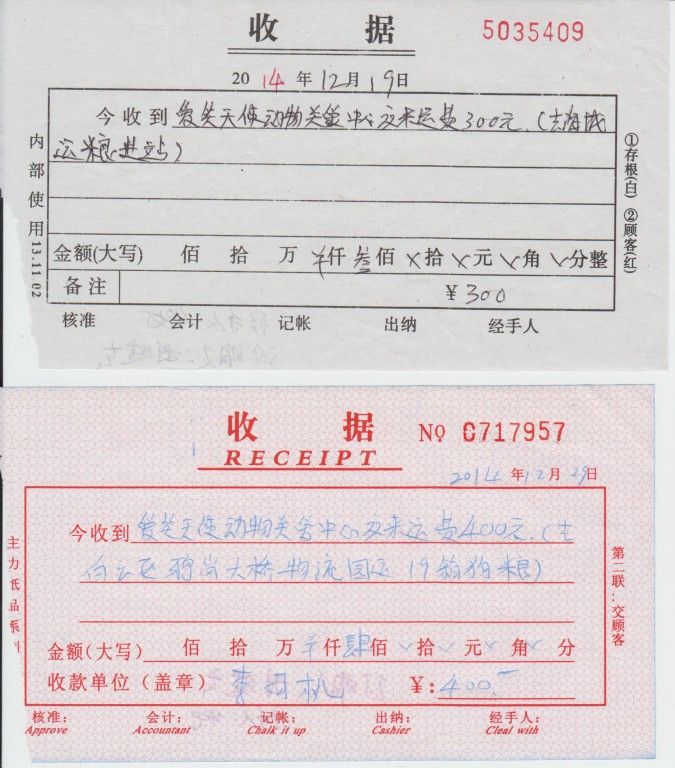 收 据
5035409
2014年12月19日
今收到 爱关天使动物关爱中心交来运费300元.(去海城
运粮进站)
金额(大写) 佰 拾 万 ¥仟叁佰×拾×元×角×分整
备注 ¥300
核准 会计 记帐 出纳 经手人
内部使用 13.11.02
①存根(白) ②顾客(红)
收 据
RECEIPT
No 0717957
2014年12月29日
今收到 爱关天使动物关爱中心交来运费400元.(去
白云区 大桥物流园运19箱狗粮)
金额(大写) 佰 拾 万 ¥仟肆佰×拾×元×角×分
收款单位(盖章) 李 机 ¥:400.-
核准: 会计: 记帐: 出纳: 经手人:
Approve Accountant Chalk it up Cashier Cleal with
主力纸品系列
第二联:交顾客